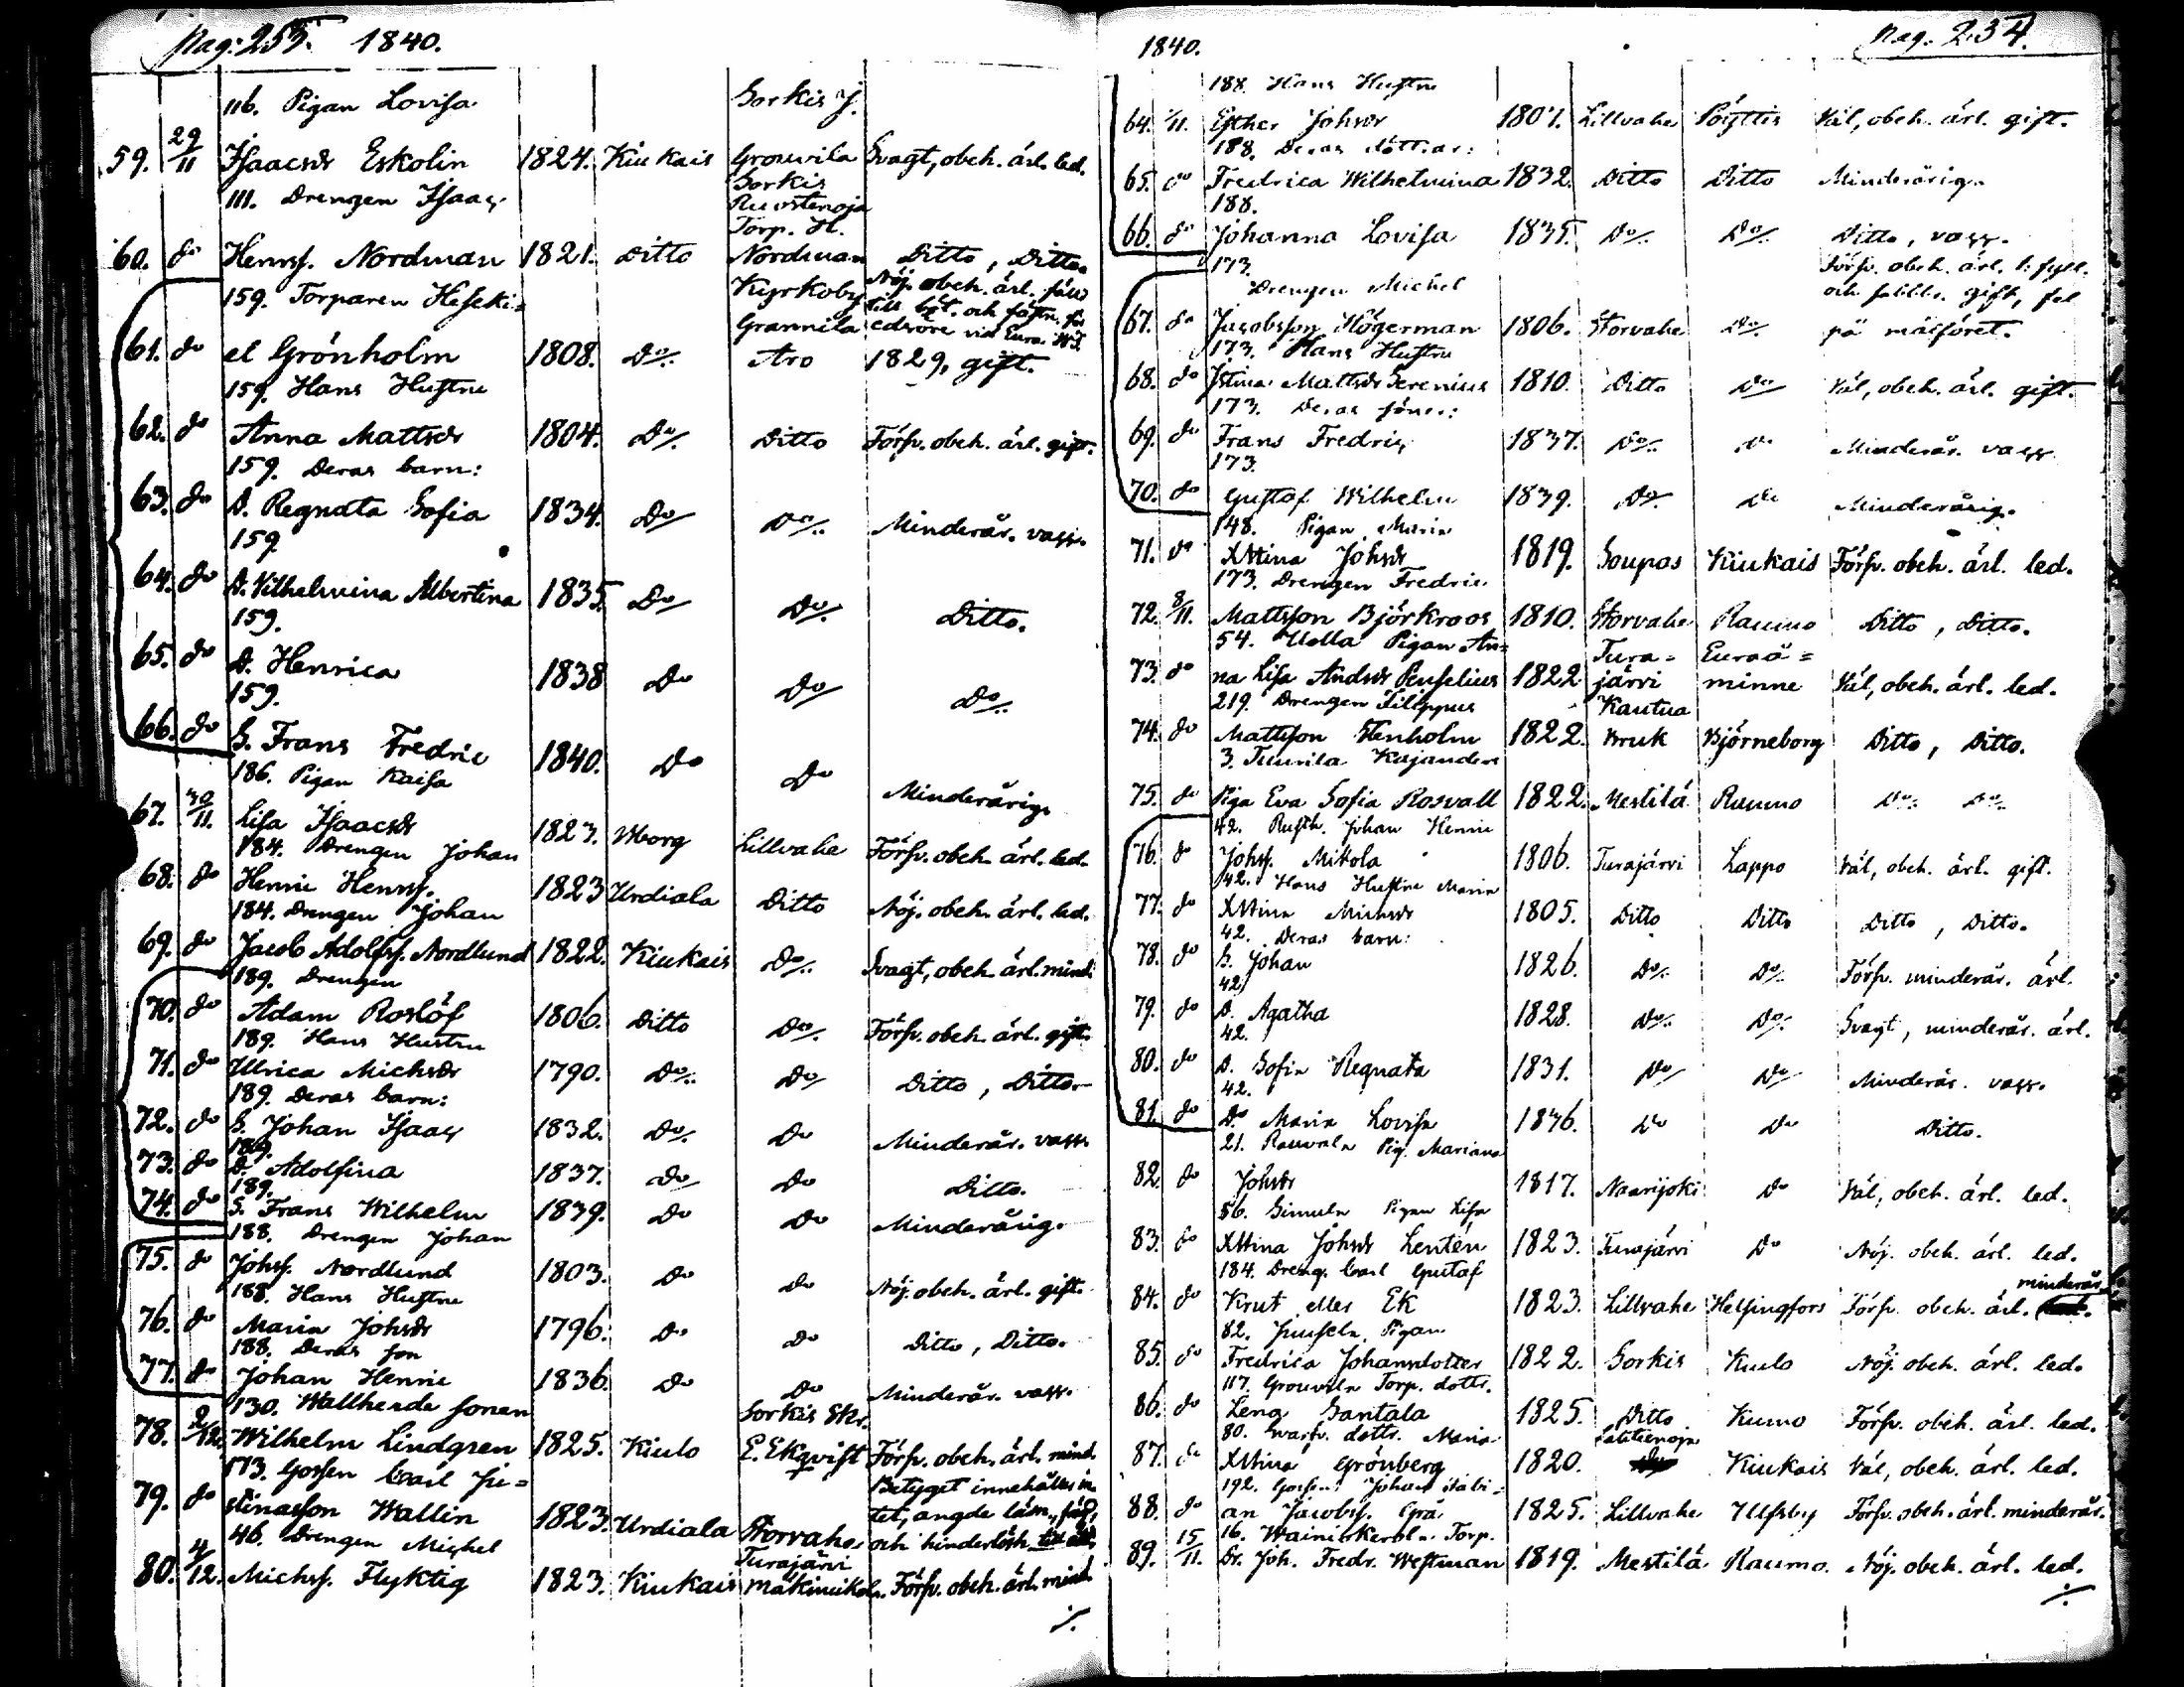 Pag: 255. 1840.
116. Pigan Lovisa Sorkis
59. 29/11 Isaacsdr Eskolin 1824. Kiukais Grouvila Svagt, obeh. ärl. led.
111. Drengen Isaac Sorkis
Ruostenoja
Torp. H.
60. do Henrsf. Nordman 1821. Ditto Nordman Ditto, Ditto.
159. Torparen Heseki= Kyrkoby Nöj. obeh. ärl.
Grannila edsöre vid Eura
61. do el Grönholm 1808. Do Aro 1829, gift.
159. Hans Hustru
62. do Anna Mattsdr 1804. Do Ditto Försv. obeh. ärl. gift.
159. Deras barn:
63. do D. Regnata Sofia 1834. Do Do Minderår. vacc.
159.
64. do D. Vilhelmina Albertina 1835. Do Do Ditto.
159.
65. do D. Henrica 1838 Do Do Do
159.
66. do S. Frans Fredric 1840. Do Do Minderårig.
186. Pigan Kaisa
67. 30/11. Lisa Isaacsdr 1823. Uborg Lillvaha Försv. obeh. ärl. led.
184. Drengen Johan
68. do Henric Henrsf. 1823 Urdiala Ditto Nöj. obeh. ärl. led.
184. Drengen Johan
69. do Jacob Adolfsf. Nordlund 1822. Kiukais Do Svagt, obeh. ärl. mind.
189. Drengen
70. do Adam Roslöf 1806. Ditto Do Försv. obeh. ärl. gift.
189. Hans Hustru
71. do Ulrica Michsdr 1790. Do Do Ditto, Ditto.
189. Deras barn:
72. do S. Johan Isaac 1832. Do Do Minderår. vacc.
189.
73. do D. Adolfina 1837. Do Do Ditto.
189.
74. do S. Frans Wilhelm 1839. Do Do Minderårig.
188. Drengen Johan
75. do Johsf. Nordlund 1803. Do Do Nöj. obeh. ärl. gift.
188. Hans Hustru
76. do Maria Johsdr 1796. Do Do Ditto, Ditto.
188. Deras son
77. do Johan Henric 1836. Do Do Minderår. vacc.
130. Wallherde sonen Sorkis Skr.
78. 2/12. Wilhelm Lindgren 1825. Kiulo E. Ekqvist Försv. obeh. ärl. mind.
173. Gossen Carl Ju= Betyget innehåller in
79. do stinasson Wallin 1823. Urdiala Storvaha
46. Drengen Michel och hinderlösh.
Turajärvi
80. 4/12. Michsf. Flyktig 1823. Kiukais Mäkimikola. Försv. obeh. ärl. mind.
1840. Pag. 234.
188. Hans Hustru
64. 7/11. Esther Johsdr 1807. Lillvaha Pöyttis Väl, obeh. ärl. gift.
188. Deras döttrar:
65. do Fredrica Wilhelmina 1832. Ditto Ditto Minderårig.
188.
66. do Johanna Lovisa 1835. Do Do Ditto, vacc.
173. Försv. obeh. ärl.
Drengen Michel gift, fel
67. do Jacobsson Högerman 1806. Storvaha Do på målföret.
173. Hans Hustru
68. do Justina Mattsdr Serenius 1810. Ditto Do Väl, obeh. ärl. gift.
173. Deras söner:
69. do Frans Fredric 1837. Do Do Minderår. vacc.
173.
70. do Gustaf Wilhelm 1839. Do Do Minderårig.
148. Pigan Maria
71. do Xstina Johsdr 1819. Soupas Kiukais Försv. obeh. ärl. led.
173. Drengen Fredric
72. 8/11. Mattsson Björkroos 1810. Storvaha Raumo Ditto, Ditto.
54. Uolla Pigan An= Tura= Euraå=
73. do na Lisa Andsdr Penselius 1822 järvi minne Väl, obeh. ärl. led.
219. Drengen Filippus Kautua
74. do Mattsson Stenholm 1822. Bruk Björneborg Ditto, Ditto.
3. Tuurila Kajanders
75. do Piga Eva Sofia Rosvall 1822. Mestilä Raumo Do Do
42. Rusth. Johan Henric
76. do Johsf. Mikola 1806. Turajärvi Lappo Väl, obeh. ärl. gift.
42. Hans Hustru Maria
77. do Xstina Michsdr 1805. Ditto Ditto Ditto, Ditto.
42. Deras barn:
78. do S. Johan 1826. Do Do Försv. minderår. ärl.
42.
79. do D. Agatha 1828. Do Do Svagt, minderår. ärl.
42.
80. do D. Sofia Regnata 1831. Do Do Minderår. vacc.
42.
81. do D. Maria Lovisa 1836. Do Do Ditto.
21. Rauvola Pig. Mariana
82. do Johsdr 1817. Naarijoki Do Väl, obeh. ärl. led.
56. Simula Pigan Lisa
83. do Xstina Johsdr Lentén 1823. Turajärvi Do Nöj. obeh. ärl. led.
184. Dreng. Carl Gustaf minderår.
84. do Krut eller Ek 1823. Lillvaha Helsingfors Försv. obeh. ärl.
82. Juusela Pigan
85. do Fredrica Johansdotter 1822. Sorkis Kiulo Nöj. obeh. ärl. led.
117. Grouvila Torp. dottr.
86. do Lena Santala 1825. Ditto Kumo Försv. obeh. ärl. led.
80. dottr. Maria
87. do Xstina Grönberg 1820. Kiukais Väl, obeh. ärl. led.
192. Gossen Johan Fabi=
88. do an Jacobsf. Grå 1825. Lillvaha Ulfsby Försv. obeh. ärl. minderår.
16. Torp.
89. 15/11. Dr. Joh. Fredr. Westman 1819. Mestilä Raumo. Nöj. obeh. ärl. led.